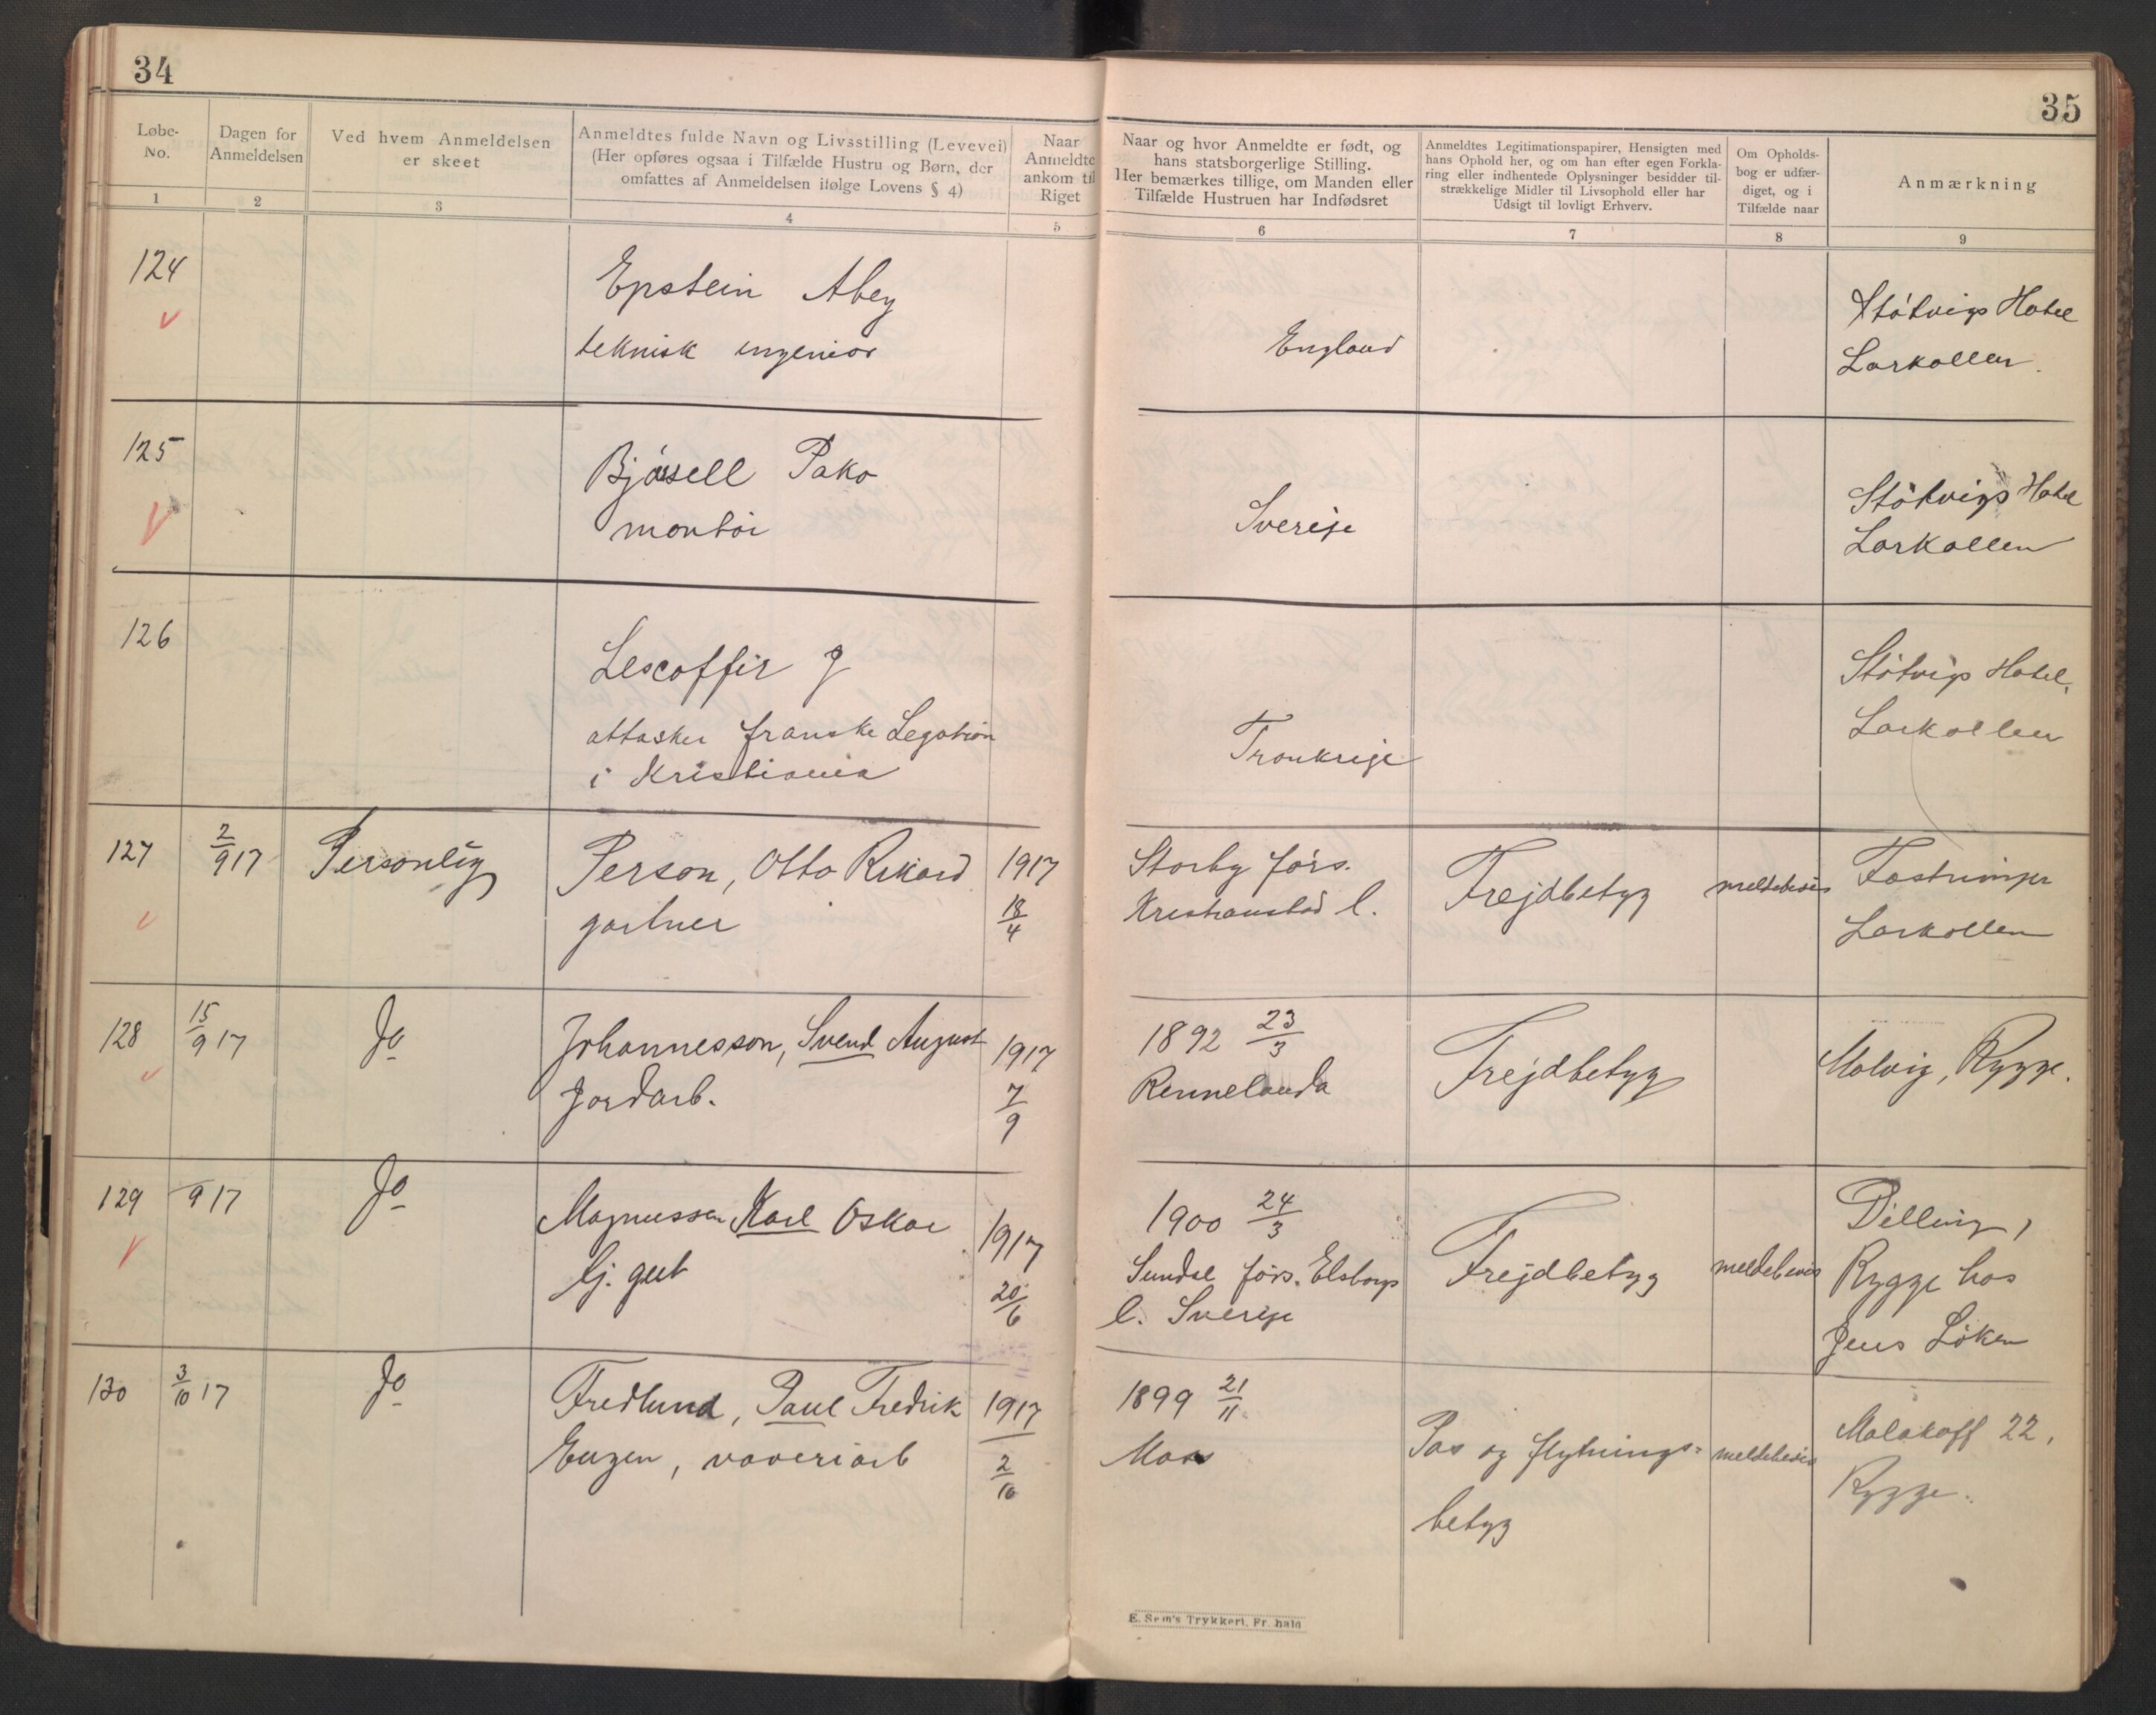 34
Løbe-
No.
Dagen for
Anmeldelsen
Ved hvem Anmeldelsen
er skeet
Anmeldtes fulde Navn og Livsstilling (Levevei)
(Her opføres ogsaa i Tilfælde Hustru og Børn, der
omfattes af Anmeldelsen ifølge Lovens § 4)
Naar
Anmeldte
ankom til
Riget
1
2
3
4
5
124
Epstein Abey
teknisk ingeniør
125
Bjøssell Pako
montör
126
Lescoffir J
attasker franske Legation
i Kristiania
127
2/9 17
Personlig
Person, Otto Rikard
gartner
1917
18/4
128
15/9 17
Do
Johannesson, Svend August
Jordarb.
1917
7/9
129
9 17
Do
Magnussen Karl Oskar
tj. gut
1917
20/6
130
3/10 17
Do
Fredlund, Paul Fredrik
Eugen, vaveriarb
1917
2/10
35
Naar og hvor Anmeldte er født, og
hans statsborgerlige Stilling.
Her bemærkes tillige, om Manden eller
Tilfælde Hustruen har Indfødsret
Anmeldtes Legitimationspapirer, Hensigten med
hans Ophold her, og om han efter egen Forkla-
ring eller indhentede Oplysninger besidder til-
strækkelige Midler til Livsophold eller har
Udsigt til lovligt Erhverv.
Om Opholds-
bog er udfær-
diget, og i
Tilfælde naar
Anmærkning
6
7
8
9
England
Støtvigs Hotel
Larkollen.
Sverige
Støtvigs Hotel
Larkollen
Frankrige
Støtvigs Hotel,
Larkollen
Storby förs.
Kristianstad l.
Frejdbetyg
meldebevis
Larkollen
1892 23/3
Rennelanda
Frejdbetyg
Molvig, Rygge.
1900 24/3
Sundal förs. Elsborgs
l. Sverige
Frejdbetyg
meldebevis
Dilling,
Rygge hos
Jens Löken
1899 21/11
Moss
Pas og flytnings-
betyg
meldebevis
Malakoff 22,
Rygge.
E. Sem's Trykkeri, Fr.hald